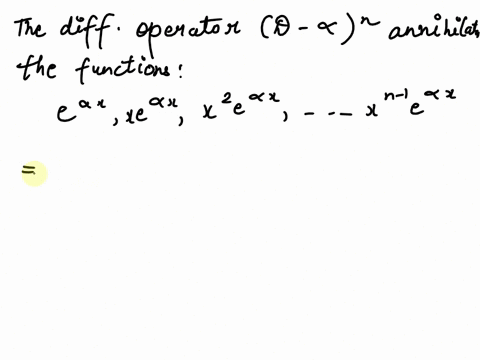 The diff. operator (D - α)^n annihilates
the functions:
e^{αx}, xe^{αx}, x^2 e^{αx}, - - -- x^{n-1} e^{αx}
=